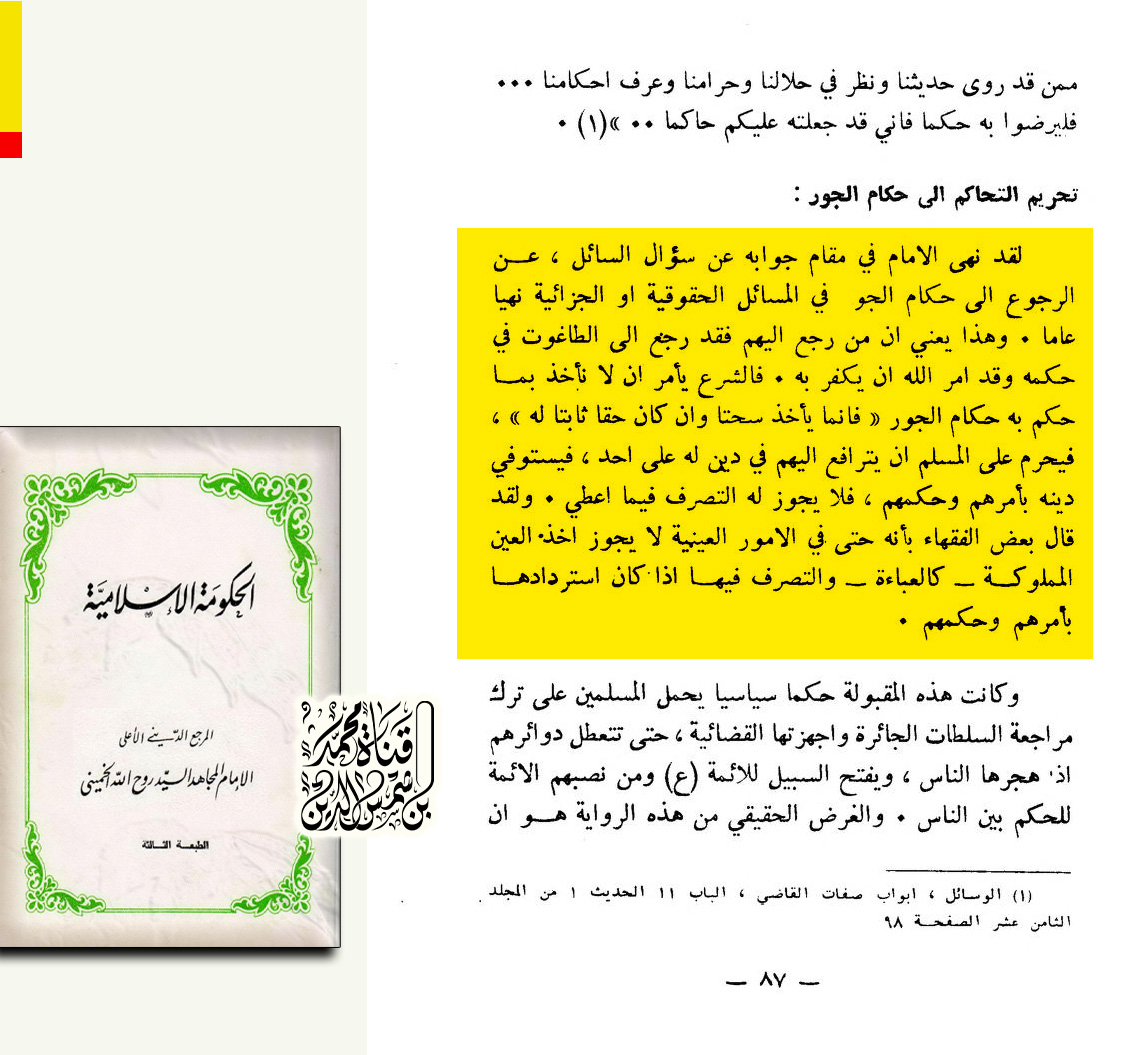 ممن قد روى حديثنا ونظر في حلالنا وحرامنا وعرف احكامنا ٠٠٠
فليرضوا به حكما فاني قد جعلته عليكم حاكما ٠٠ »(١) ٠
تحريم التحاكم الى حكام الجور :
لقد نهى الامام في مقام جوابه عن سؤال السائل ، عــن
الرجوع الى حكام الجو في المسائل الحقوقية او الجزائية نهيا
عاما ٠ وهذا يعني ان من رجع اليهم فقد رجع الى الطاغوت في
حكمه وقد امر الله ان يكفر به ٠ فالشرع يأمر ان لا نأخذ بمــا
حكم به حكام الجور « فانما يأخذ سحتا وان كان حقا ثابتا له » ،
فيحرم على المسلم ان يترافع اليهم في دين له على احد ، فيستوفي
دينه بأمرهم وحكمهم ، فلا يجوز له التصرف فيما اعطي ٠ ولقد
قال بعض الفقهاء بأنه حتى في الامور العينية لا يجوز اخذ العين
المملوكــة ــ كالعباءة ــ والتصرف فيهــا اذا كان استردادهــا
بأمرهم وحكمهم ٠
وكانت هذه المقبولة حكما سياسيا يحمل المسلمين على ترك
مراجعة السلطات الجائرة واجهزتها القضائية ، حتى تتعطل دوائرهم
اذ هجرها الناس ، ويفتح السبيل للائمة (ع) ومن نصبهم الائمة
للحكم بين الناس ٠ والغرض الحقيقي من هذه الرواية هــو ان
(١) الوسائل ، ابواب صفات القاضي ، الباب ١١ الحديث ١ من المجلد
الثامن عشر الصفحــة ٩٨
ــ ٨٧ ــ
الحكومة الإسلامية
المرجع الديني الأعلى
الإمام المجاهد السيد روح الله الخميني
الطبعــة الثــالثة
قناة محمد
بن شمس الدين